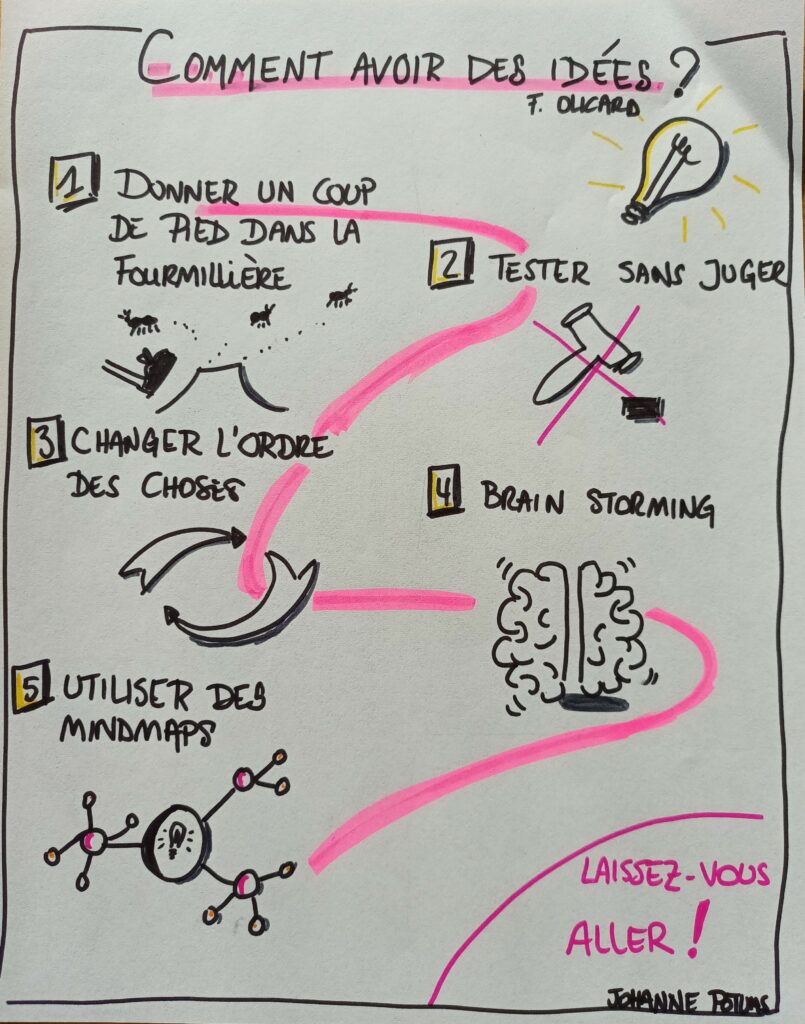 COMMENT AVOIR DES IDÉES ?
F. OLICARD
1 DONNER UN COUP
DE PIED DANS LA
FOURMILLIÈRE
2 TESTER SANS JUGER
3 CHANGER L'ORDRE
DES CHOSES
4 BRAIN STORMING
5 UTILISER DES
MINDMAPS
LAISSEZ-VOUS
ALLER !
JOHANNE